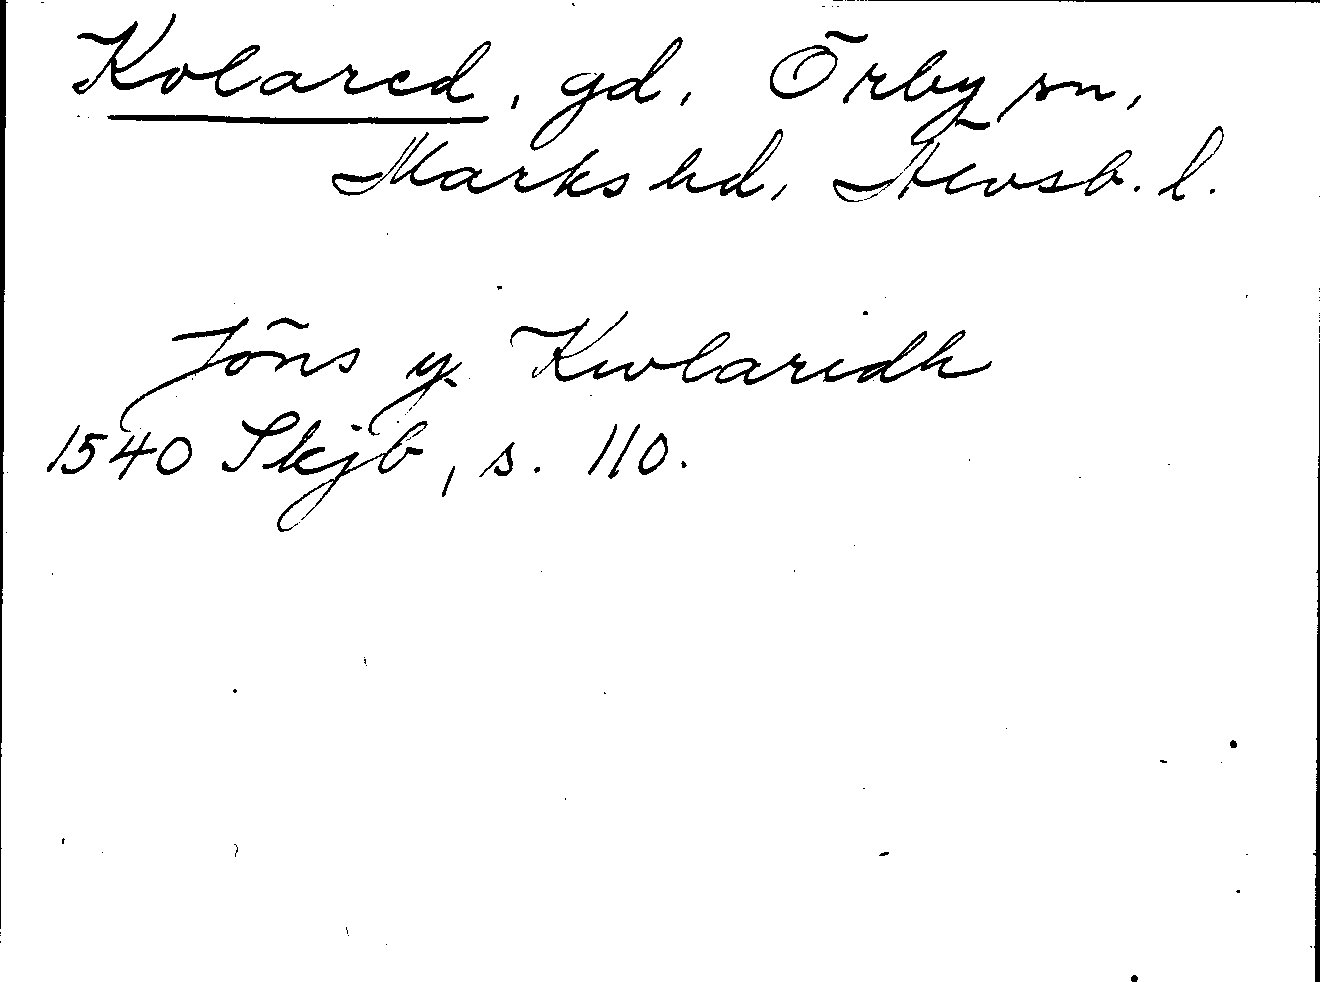 Kolared, gd, Örby sn,
Marks hd, Älvsb. l.
Jöns y Kwlaridh
1540 Skjb, s. 110.